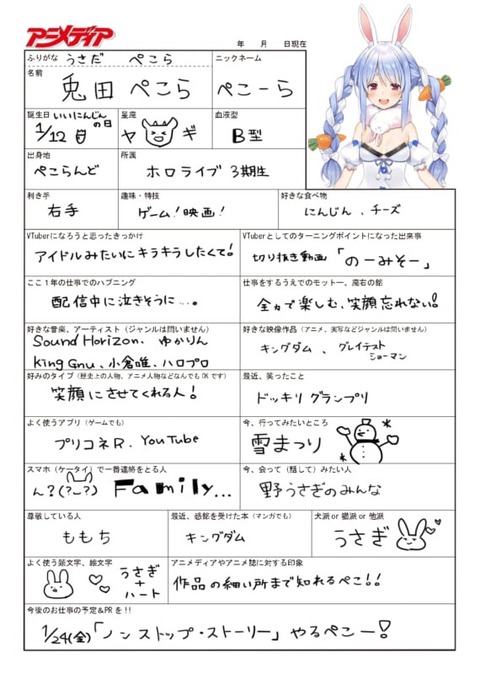 アニメディア
年　月　日現在
ふりがな　うさだ　ぺこら
ニックネーム
名前　兎田 ぺこら
ぺこーら
誕生日　いいにんじんの日
1/12 日
星座
ヤギ
血液型
B型
出身地
ぺこらんど
所属
ホロライブ 3期生
利き手
右手
趣味・特技
ゲーム!映画!
好きな食べ物
にんじん、チーズ
VTuberになろうと思ったきっかけ
アイドルみたいにキラキラしたくて!
VTuberとしてのターニングポイントになった出来事
切り抜き動画「のーみそー」
ここ1年の仕事でのハプニング
配信中に泣きそうに…。
仕事をするうえでのモットー、座右の銘
全力で楽しむ、笑顔忘れない!
好きな音楽、アーティスト（ジャンルは問いません）
Sound Horizon、ゆかりん
King Gnu、小倉唯、ハロプロ
好きな映像作品（アニメ、実写などジャンルは問いません）
キングダム、グレイテスト
ショーマン
好みのタイプ（歴史上の人物、アニメ人物などなんでもOKです）
笑顔にさせてくれる人!
最近、笑ったこと
ドッキリ グランプリ
よく使うアプリ（ゲームでも）
プリコネR、YouTube
今、行ってみたいところ
雪まつり
スマホ（ケータイ）で一番連絡をとる人
ん?(?_?) Family...
今、会って（話して）みたい人
野うさぎのみんな
尊敬している人
ももち
最近、感銘を受けた本（マンガでも）
キングダム
犬派 or 猫派 or 他派
うさぎ
よく使う顔文字、絵文字
うさぎ
+
ハート
アニメディアやアニメ誌に対する印象
作品の細い所まで知れるぺこ!!
今後のお仕事の予定&PRを!!
1/24(金)「ノンストップ・ストーリー」やるぺこー!